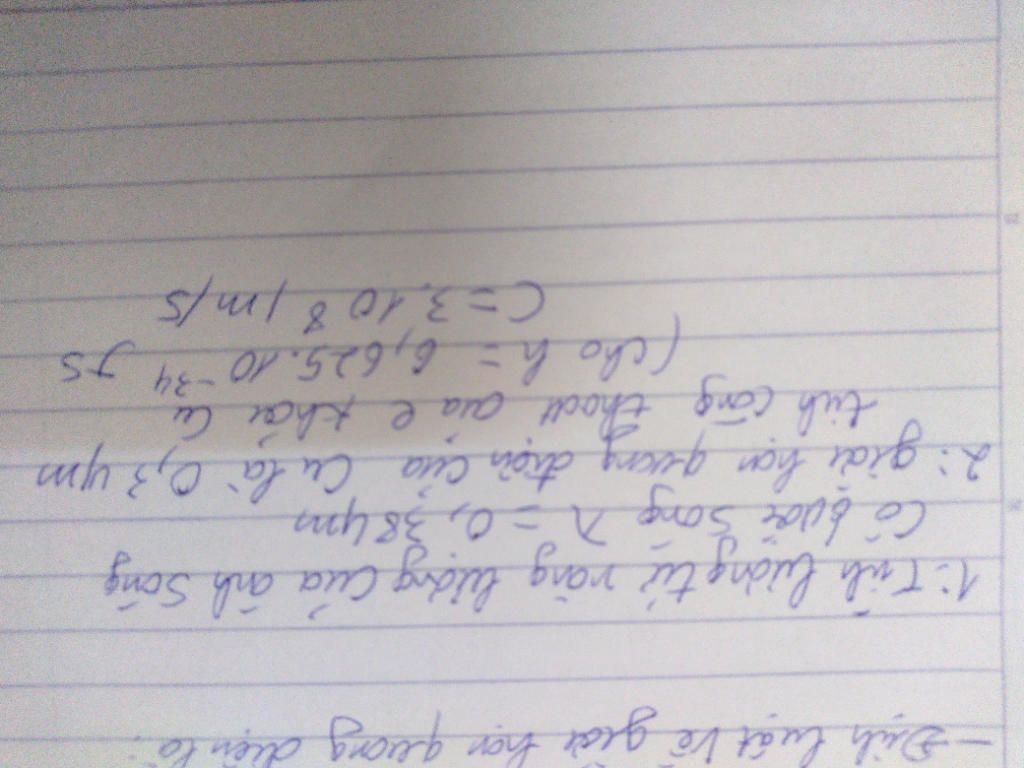 - Định luật về giới hạn quang điện là:
1: Tính lượng tử năng lượng của ánh sáng
Có bước sóng λ = 0,38 μm
2: giới hạn quang điện của Cu là 0,3 μm
tính công thoát của e khỏi Cu
(cho h = 6,625.10⁻³⁴ Js
C = 3.10⁸ m/s